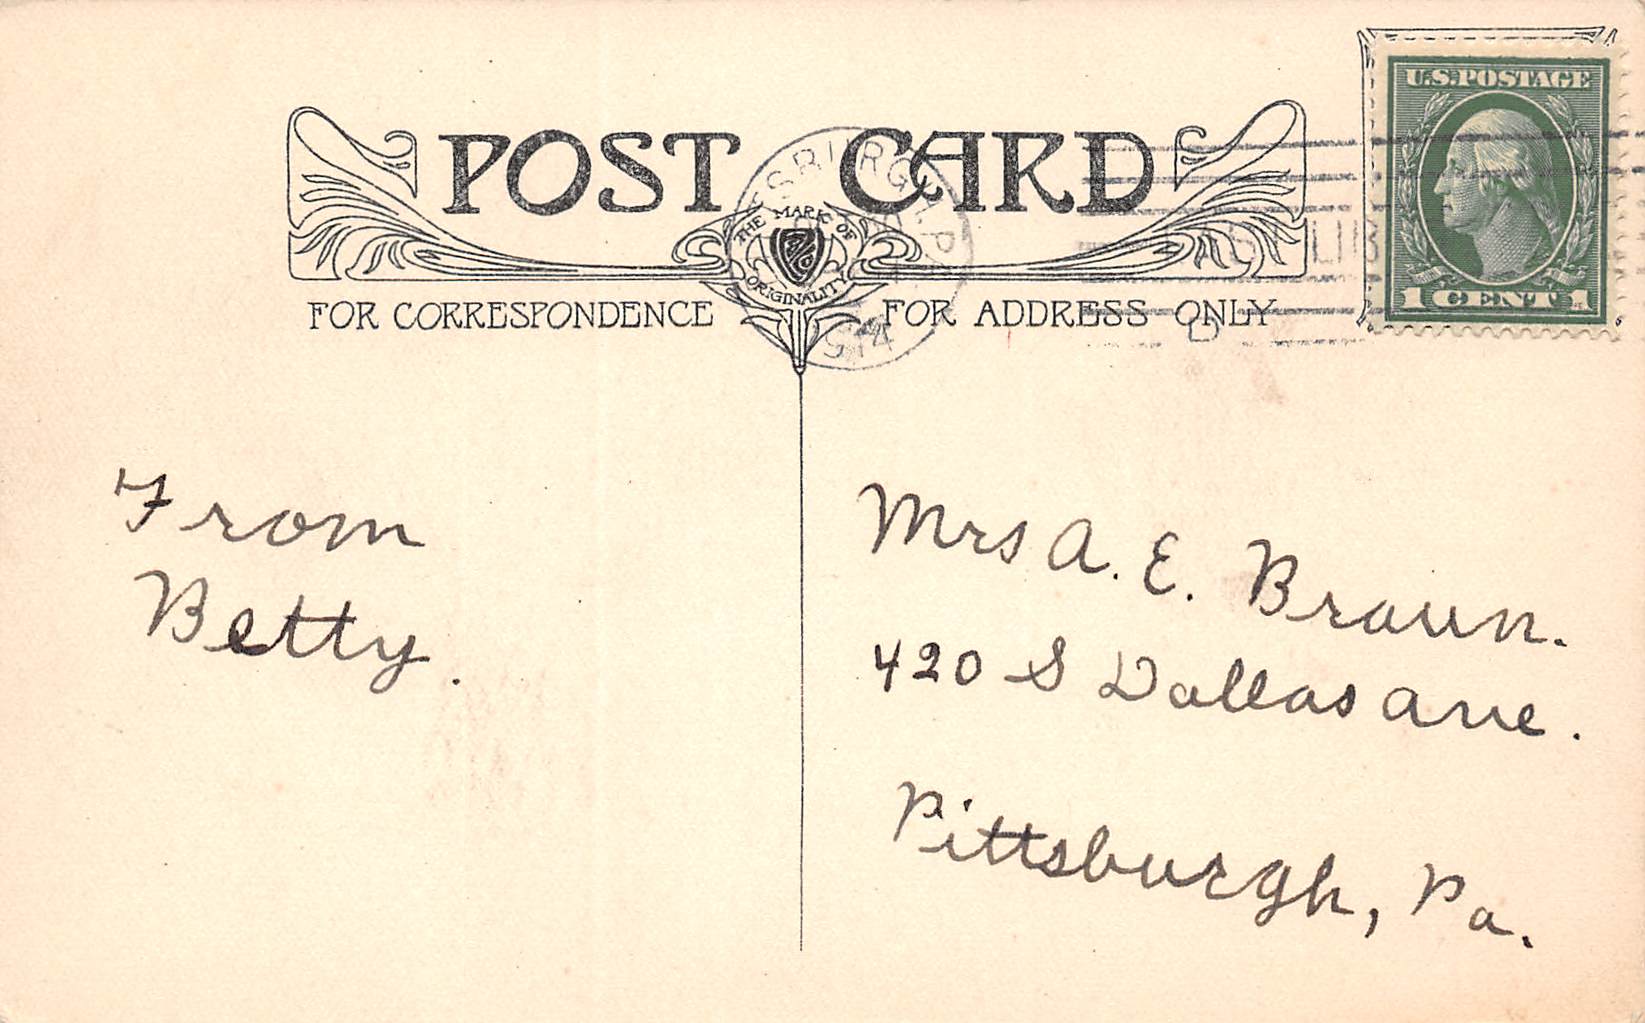 U.S. POSTAGE
POST CARD
THE MARK OF
ORIGINALITY
FOR CORRESPONDENCE
FOR ADDRESS ONLY
1 CENT 1
1914
From
Betty.
Mrs A. E. Braun.
420 S Dallas Ave.
Pittsburgh, Pa.